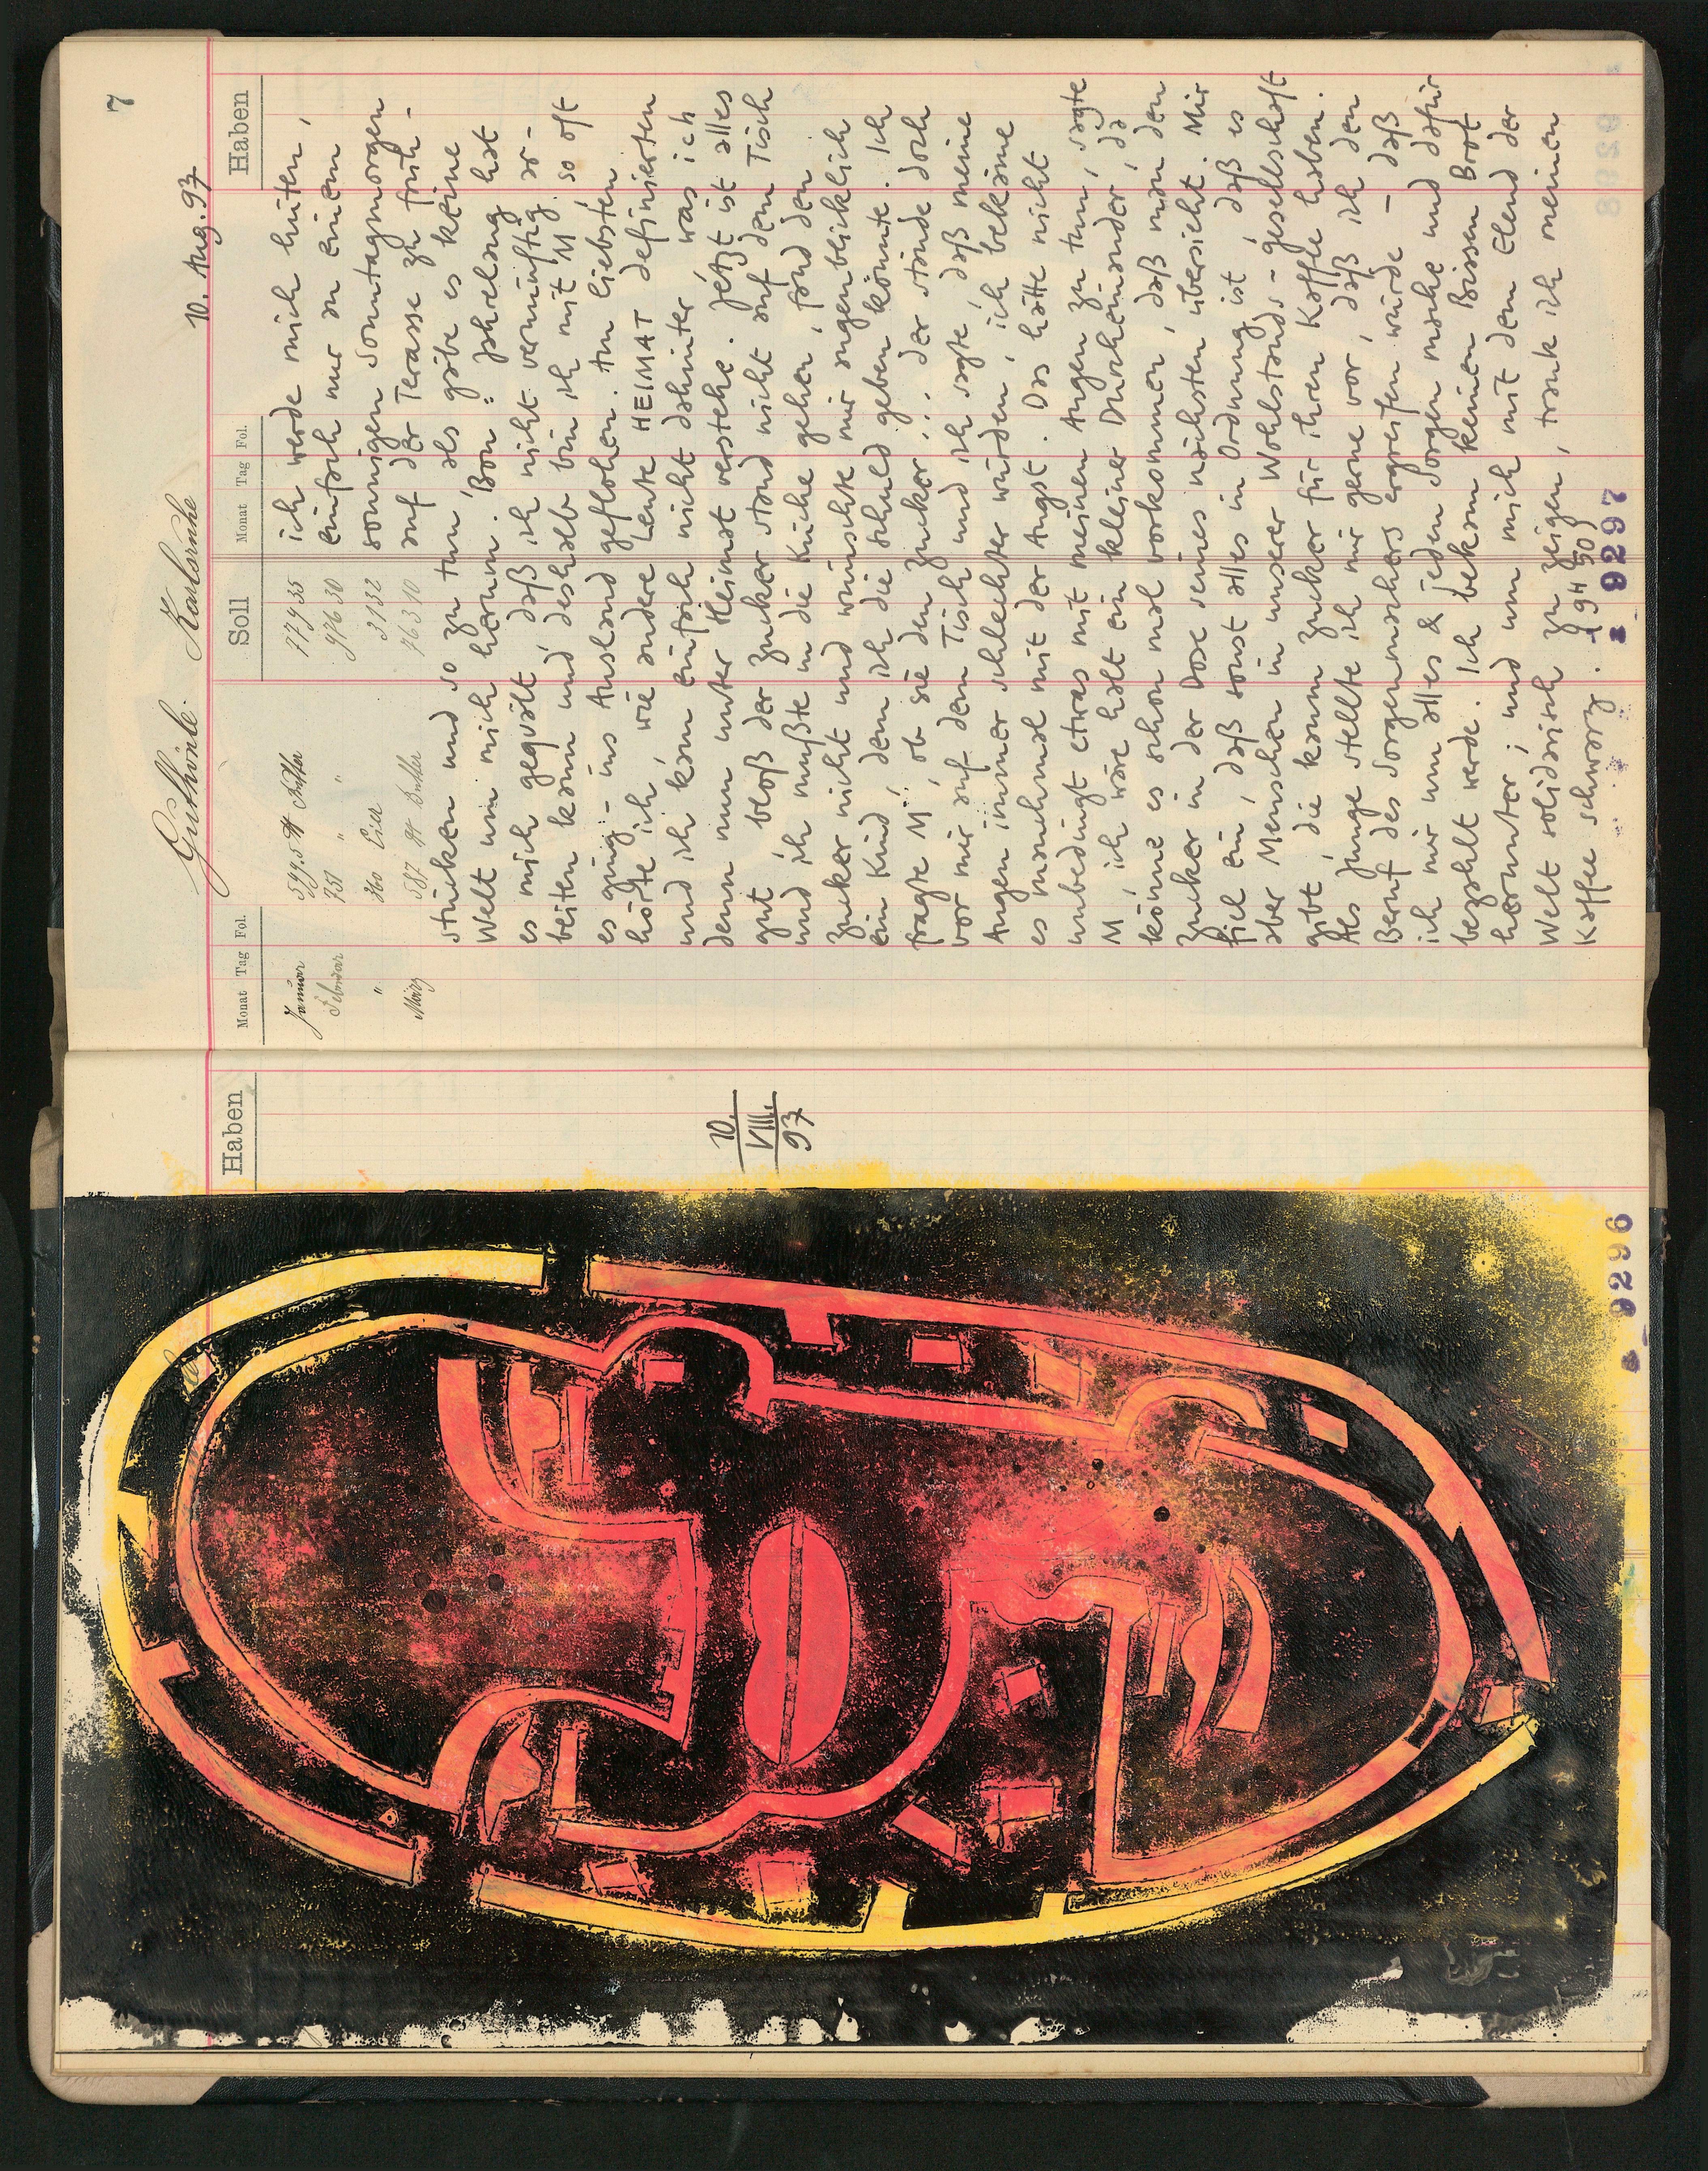 Haben
10.
VIII.
93
9296
7
Guthörle Karlsruhe
10. Aug. 93
Monat Tag Fol. Soll Monat Tag Fol. Haben
Januar
Februar 751 " "
" 360
März 587 Butter
ich werde mich hüten,
einfach nur an einem
sonnigen Sonntagmorgen
auf der Terasse zu früh-
stücken und so zu tun, als gäbe es keine
Welt um mich herum. Bon: jahrelang hat
es mich gequält, daß ich nicht vernünftig ar-
beiten kann und deshalb bin ich mit M. so oft
es ging - ins Ausland geflohen. Am liebsten
hörte ich, wie andere Leute HEIMAT definierten
und ich kam einfach nicht dahinter was ich
denn nun unter Heimat verstehe. Jetzt ist alles
gut, bloß der Zucker stand nicht auf dem Tisch
und ich mußte in die Küche gehen, fand den
Zucker nicht und wünschte mir augenblicklich
ein Kind, dem ich die Schuld geben könnte. Ich
fragte M., ob sie den Zucker... der stünde doch
vor mir auf dem Tisch und ich sagte, daß meine
Augen immer schlechter würden, ich bekäme
es manchmal mit der Angst. Das hätte nicht
unbedingt etwas mit meinen Augen zu tun, sagte
M, ich wäre halt ein kleiner Durcheinander, da
könne es schon mal vorkommen, daß man den
Zucker in der Dose seines nächsten übersieht. Mir
fiel ein, daß sonst alles in Ordnung ist, daß es
aber Menschen in unserer Wohlstands-gesellschaft
gibt, die kaum Zucker für ihren Kaffee haben.
Als Junge stellte ich mir gerne vor, daß ich den
Beruf des Sorgenmachers ergreifen würde - daß
ich mir um alles & jeden Sorgen mache und dafür
bezahlt werde. Ich bekam keinen Bissen Brot
herunter; und um mich mit dem Elend der
Welt solidarisch zu zeigen, trank ich meinen
Kaffee schwarz.
9297